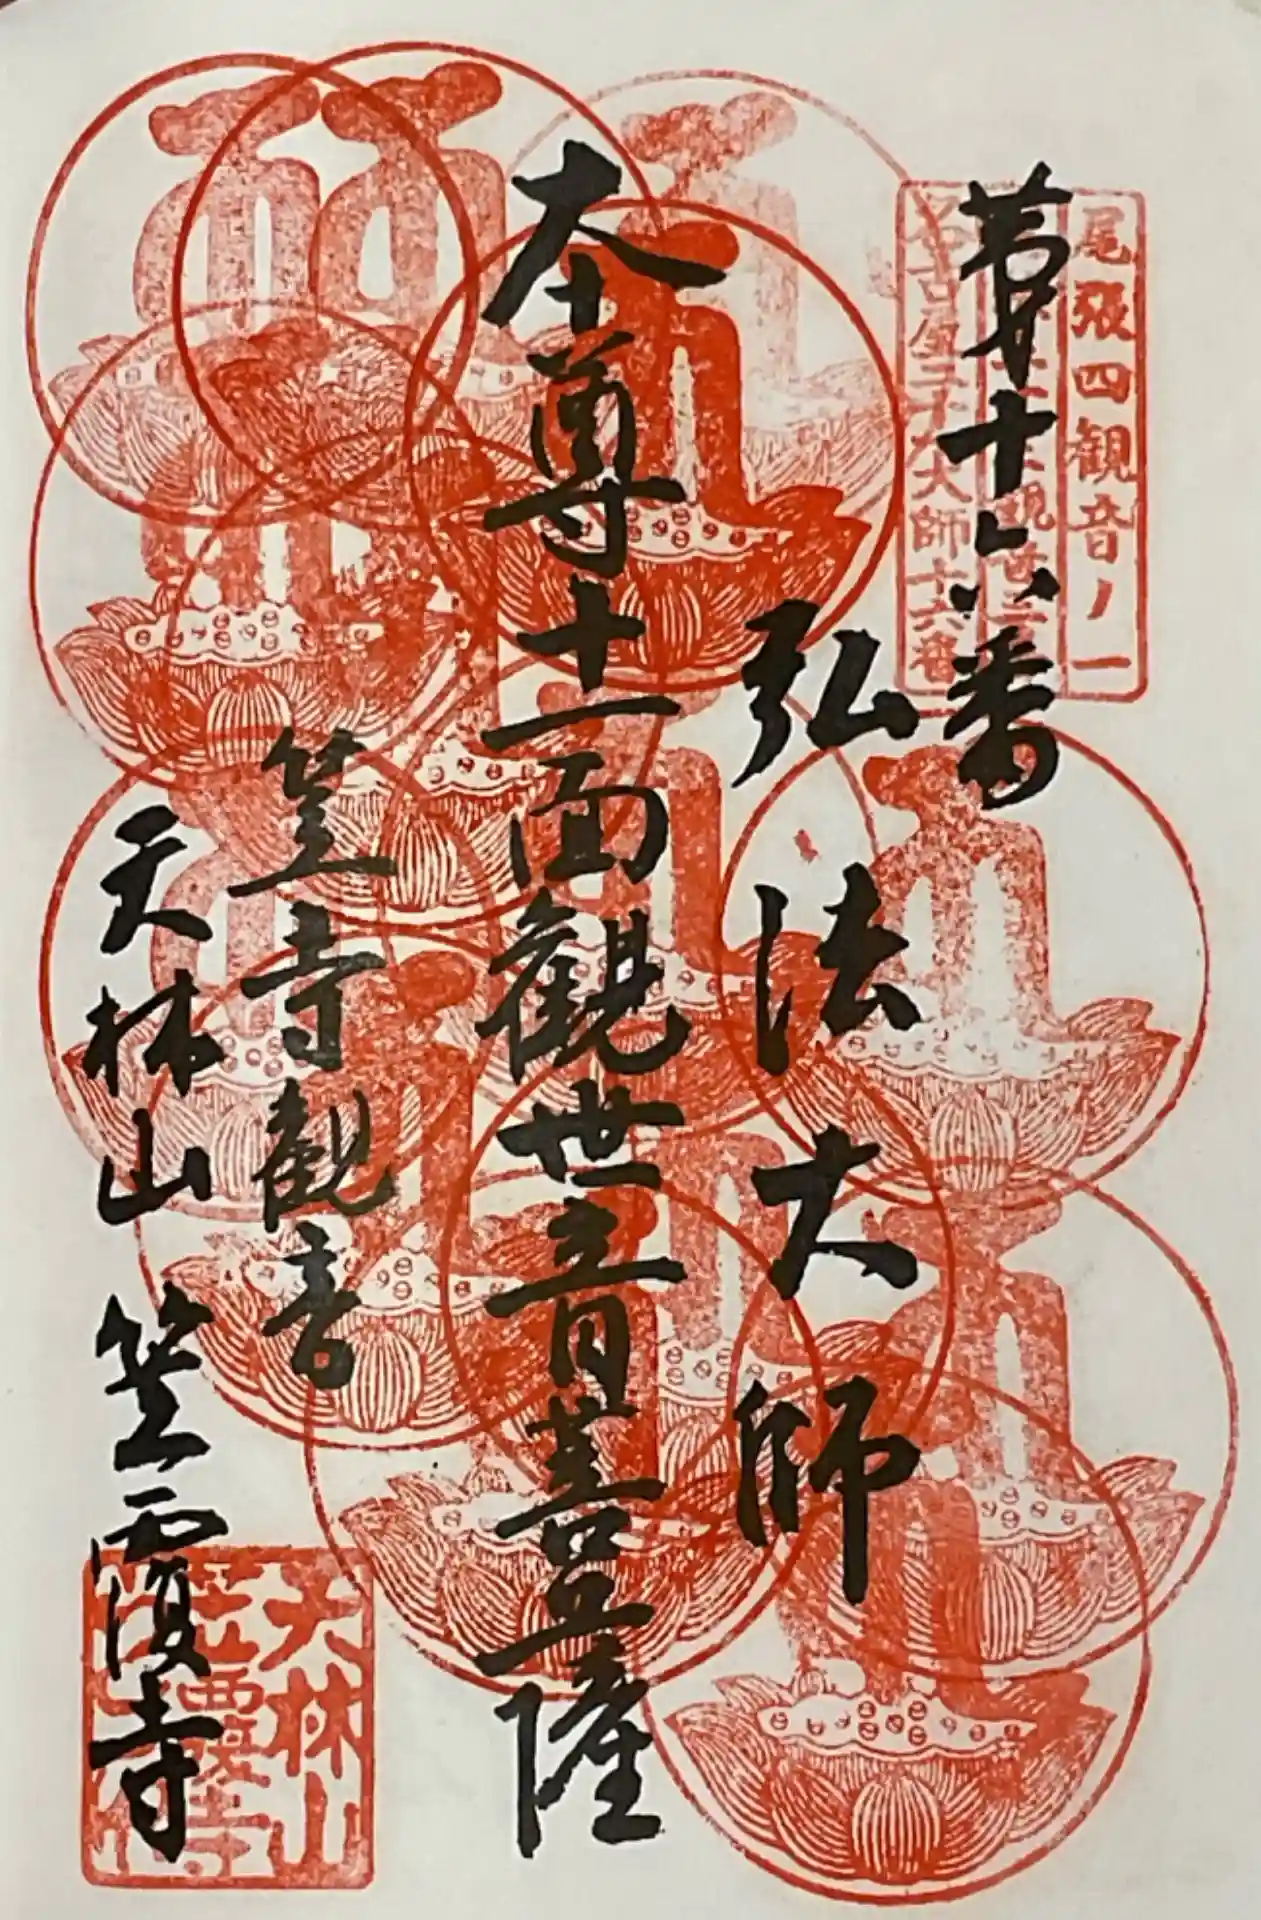 尾張四観音ノ一
第十六番
名古屋二十大師十六番
弘法大師
本尊十一面観世音菩薩
笠寺観音
天林山 笠覆寺
天林山
笠覆寺